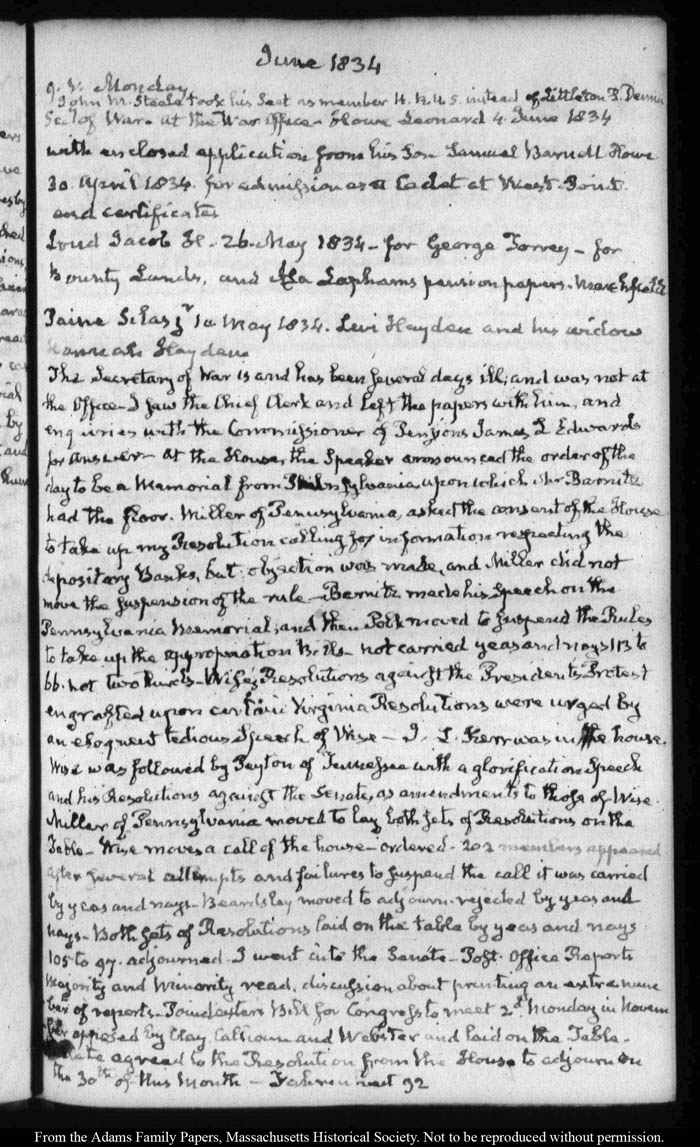 June 1834
9. V. Monday
John M. Steele took his Seat as member H. R. U. S. instead of Littleton P. Dennis
Secy of War. at the War Office - Howe Leonard 4 June 1834
with enclosed application from his Son Samuel Howe
30. April 1834. for admission as a Cadet at West-Point.
and certificates
Loud Jacob H. - 26. May 1834 - for George Torrey - for
bounty Lands, and Laphams pension papers.
Paine Silas Jr 10. May 1834. Levi Hayden and his widow
Hannah Hayden
The Secretary of War is and has been several days ill, and was not at
the Office - I saw the Chief Clerk and left the papers with him, and
enquiries with the Commissioner of Pensions James L Edwards
for answer - At the House, the Speaker announced the order of the
day to be a Memorial from Pennsylvania, upon which Mr Barnitz
had the floor. Miller of Pennsylvania, asked the consent of the House
to take up my Resolution calling for information respecting the
depositary Banks, but objection was made, and Miller did not
move the suspension of the rule - Barnitz made his Speech on the
Pennsylvania Memorial, and then Polk moved to suspend the Rules
to take up the appropriation Bills - not carried yeas and nays 113 to
66. not two thirds - Wise's Resolutions against the President's Protest
engrafted upon certain Virginia Resolutions were urged by
an eloquent tedious Speech of Wise - J. L. Kerr was in the house.
Wise was followed by Peyton of Tennessee with a glorification Speech
and his Resolutions against the Senate, as amendments to those of Wise.
Miller of Pennsylvania moved to lay both sets of Resolutions on the
Table - Wise moves a call of the house - ordered - 202 members appeared
after several attempts and failures to suspend the call it was carried
by yeas and nays - Beardsley moved to adjourn - rejected by yeas and
nays - Both sets of Resolutions laid on the table by yeas and nays
105 to 97. adjourned - I went into the Senate - Post Office Reports
Majority and Minority read, discussion about printing an extra num
ber of reports - Poindexters Bill for Congress to meet 2d Monday in Novem
ber opposed by Clay Calhoun and Webster and laid on the Table -
Senate agreed to the Resolution from the House to adjourn on
the 30th of this Month - Fahrenheit 92
From the Adams Family Papers, Massachusetts Historical Society. Not to be reproduced without permission.